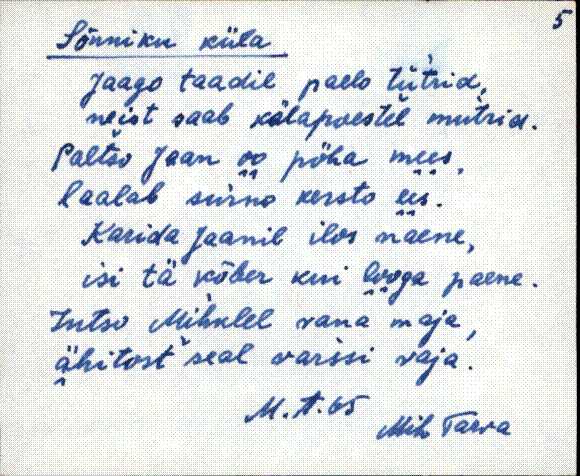 5
Sõnniku küla
Jaago taadil paelo tütrid,
neist saab külapoestel mutrid.
Paltso Jaan oo põha mees,
laalab surno kersto ees.
Karida Jaanil ilos naene,
isi tä kõber kui looga paene.
Intso Mihklel vana maja,
ähitost seal varssi vaja.
M. A. 65
Mih Tarva